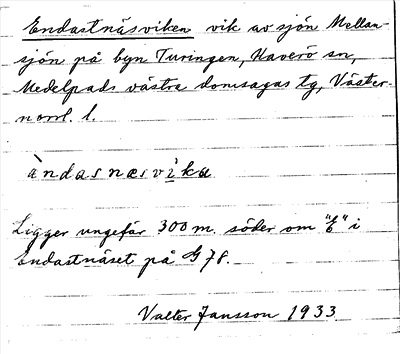 Endastnäsviken vik av sjön Mellan-
sjön på byn Turingen, Haverö sn,
Medelpads västra domsagas tg, Väster-
norrl. l.
àndasnæsvika
Ligger ungefär 300 m. söder om "E" i
Endastnäset på G 78.
Valter Jansson 1933